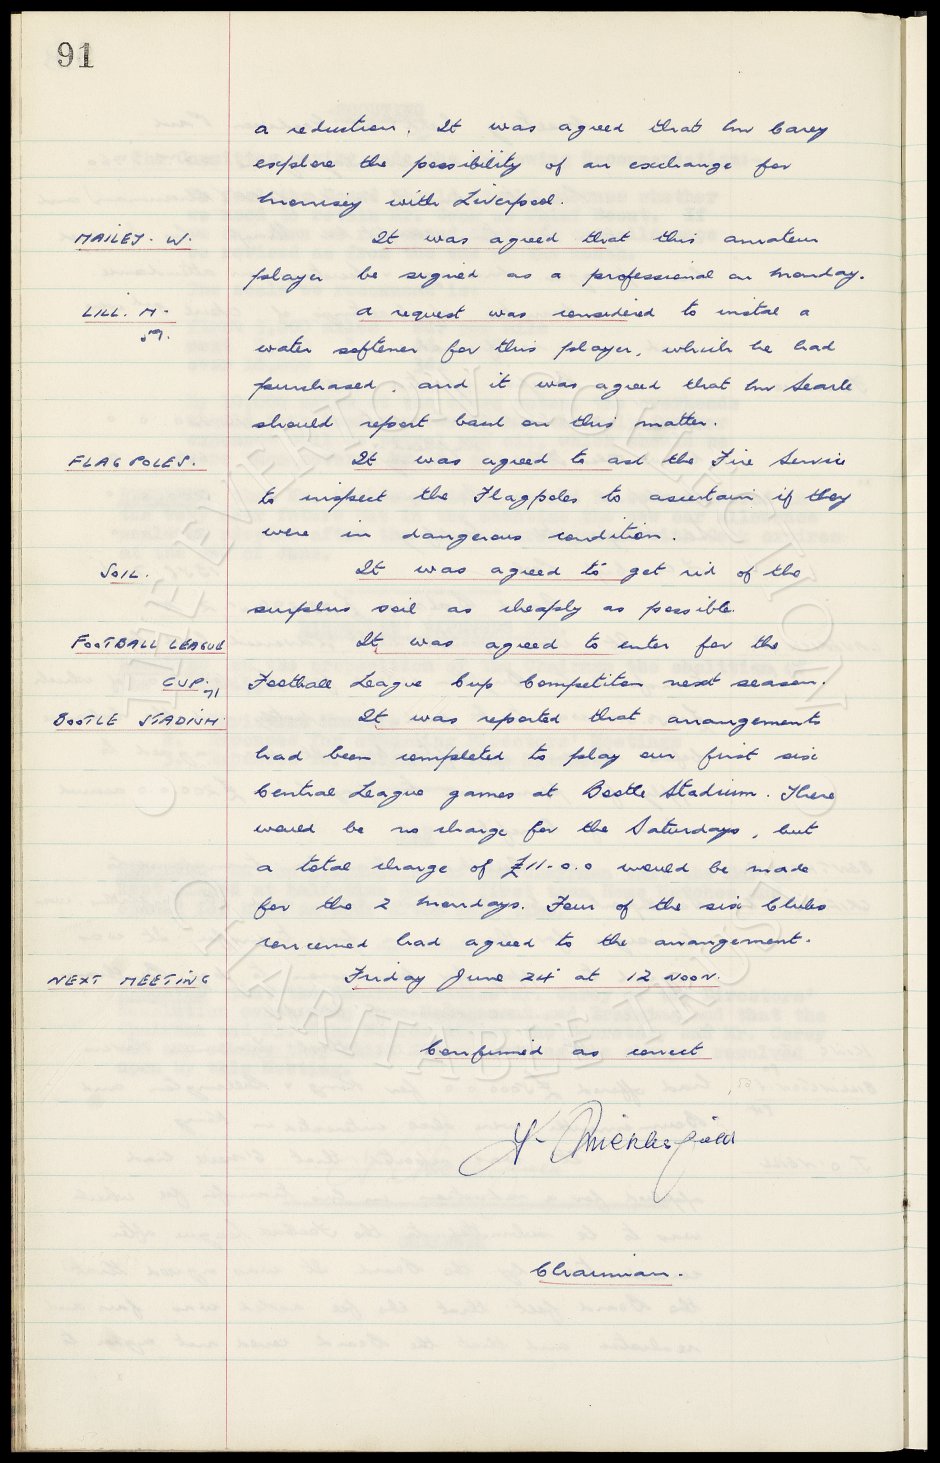 91
a reduction. It was agreed that Mr Carey
explore the possibility of an exchange for
Morrisey with Liverpool.
MAILEY. W. It was agreed that this amateur
player be signed as a professional on Monday.
LILL. M. A request was considered to instal a
59. water softener for this player, which he had
purchased, and it was agreed that Mr Searle
should report back on this matter.
FLAG POLES. It was agreed to ask the Fire Service
to inspect the Flagpoles to ascertain if they
were in dangerous condition.
SOIL. It was agreed to get rid of the
surplus soil as cheaply as possible.
FOOTBALL LEAGUE It was agreed to enter for the
CUP. 71 Football League Cup Competition next season.
BOOTLE STADIUM. It was reported that arrangements
had been completed to play our first six
Central League games at Bootle Stadium. There
would be no charge for the Saturdays, but
a total charge of £11-0.0 would be made
for the 2 Mondays. Four of the six Clubs
concerned had agreed to the arrangement.
NEXT MEETING Friday June 24 at 12 NOON.
Confirmed as correct
Chairman.
THE EVERTON COLLECTION
CHARITABLE TRUST